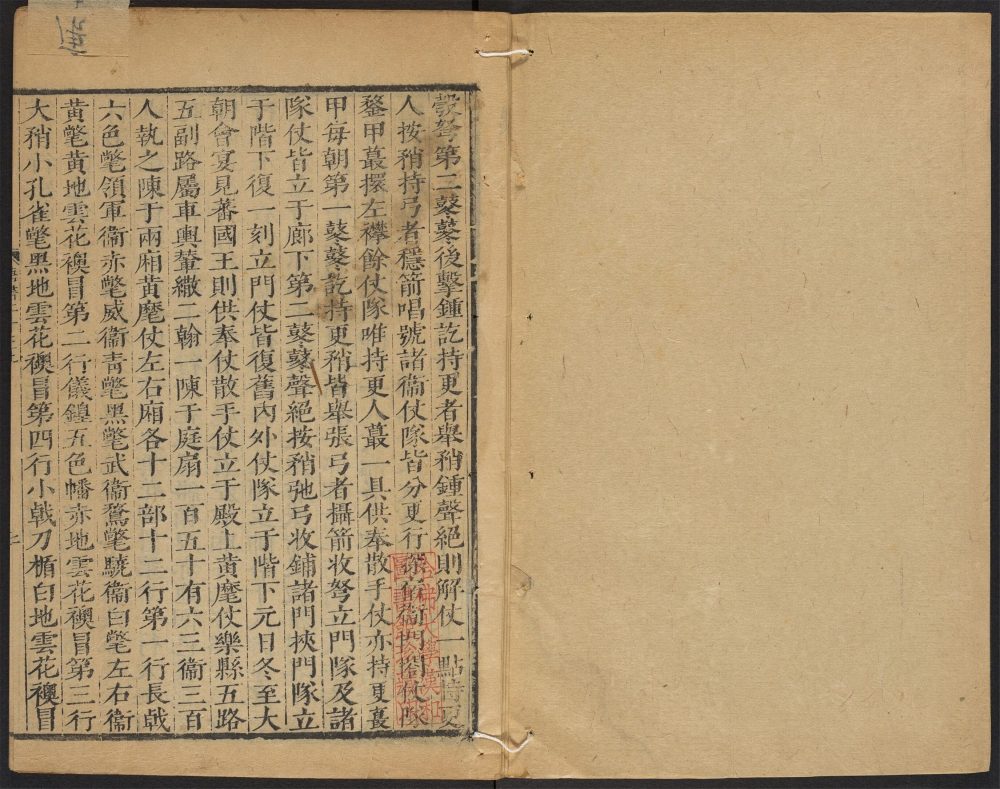 彀弩第二鼕鼕後擊鍾訖持更者舉矟鍾聲絕則解仗一點持更
人按矟持弓者穩箭唱號諸衞仗隊皆分更行探宿衞門閤仗隊
鍪甲蕞擐左襻餘仗隊唯持更人蕞一具供奉散手仗亦持更蕞
甲每朝第一鼕鼕訖持更矟皆舉張弓者攝箭收弩立門隊及諸
隊仗皆立于廊下第二鼕鼕聲絕按矟弛弓收鋪諸門挾門隊立
于階下復一刻立門仗皆復舊內外仗隊立于階下元日冬至大
朝會宴見蕃國王則供奉仗散手仗立于殿上黃麾仗樂縣五路
五副路屬車輿輦繖二翰一陳于庭扇一百五十有六三衞三百
人執之陳于兩厢黃麾仗左右廂各十二部十二行第一行長戟
六色氅領軍衞赤氅威衞青氅黑氅武衞鶩氅驍衞白氅左右衞
黃氅黃地雲花襖冒第二行儀鍠五色幡赤地雲花襖冒第三行
大矟小孔雀氅黑地雲花襖冒第四行小戟刀楯白地雲花襖冒